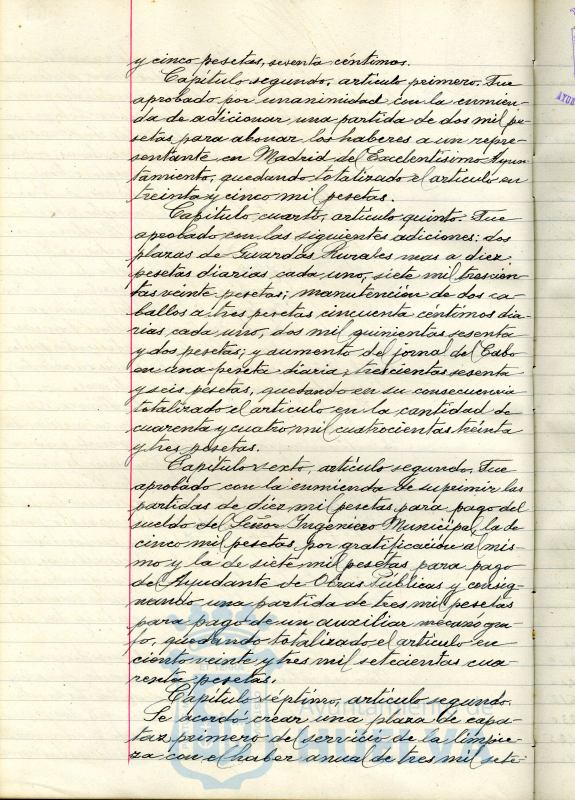 y cinco pesetas, sesenta céntimos.
Capítulo segundo, artículo primero. Fue
aprobado por unanimidad con la enmien-
da de adicionar una partida de dos mil pe-
setas para abonar los haberes a un repre-
sentante en Madrid del Excelentísimo Ayun-
tamiento, quedando totalizado el artículo en
treinta y cinco mil pesetas.
Capítulo cuarto, artículo quinto. Fue
aprobado con las siguientes adiciones: dos
plazas de Guardas Rurales mas a diez
pesetas diarias cada uno, siete mil trescien-
tas veinte pesetas; manutención de dos ca-
ballos a tres pesetas cincuenta céntimos dia-
rias cada uno, dos mil quinientas sesenta
y dos pesetas; y aumento del jornal del Cabo
en una peseta diaria, trescientas sesenta
y seis pesetas, quedando en su consecuencia
totalizado el artículo en la cantidad de
cuarenta y cuatro mil cuatrocientas treinta
y tres pesetas.
Capítulo sexto, artículo segundo. Fue
aprobado con la enmienda de suprimir las
partidas de diez mil pesetas para pago del
sueldo del Señor Ingeniero Municipal, la de
cinco mil pesetas por gratificación al mis-
mo y la de siete mil pesetas para pago
de Ayudante de Obras Públicas y consig-
nando una partida de tres mil pesetas
para pago de un auxiliar mecanogra-
fo, quedando totalizado el artículo en
ciento veinte y tres mil setecientas cua-
renta pesetas.
Capítulo séptimo, artículo segundo.
Se acordó crear una plaza de capa-
taz primero del servicio de la limpie-
za con el haber anual de tres mil sete-
Ayuntamiento de
HUELVA